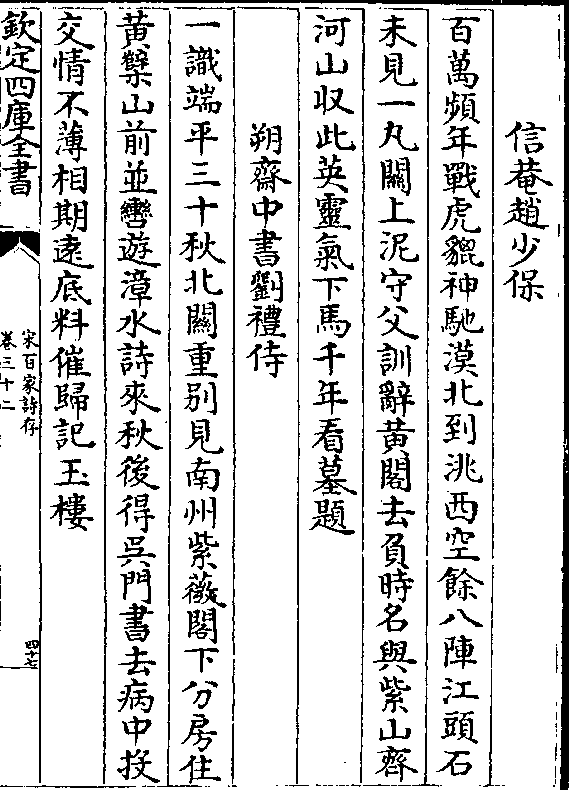 信菴趙少保
百萬頻年戰虎貔神馳漠北到洮西空餘八陣江頭石
未見一丸關上泥守父訓辭黄閣去負時名與紫山齊
河山収此英靈氣下馬千年看墓題
朔齋中書劉禮侍
一識端平三十秋北關重别見南州紫薇閣下分房住
黄檗山前並轡遊漳水詩來秋後得吳門書去病中投
交情不薄相期逺底料催歸記玉樓
欽定四庫全書
宋百家詩存
卷三十二
四十七